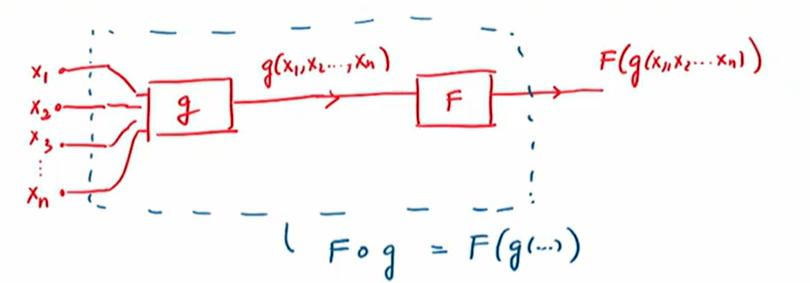 x₁
x₂
x₃
⋮
xₙ
g
g(x₁,x₂...,xₙ)
F
F(g(x₁,x₂...xₙ))
F∘g = F(g(...))